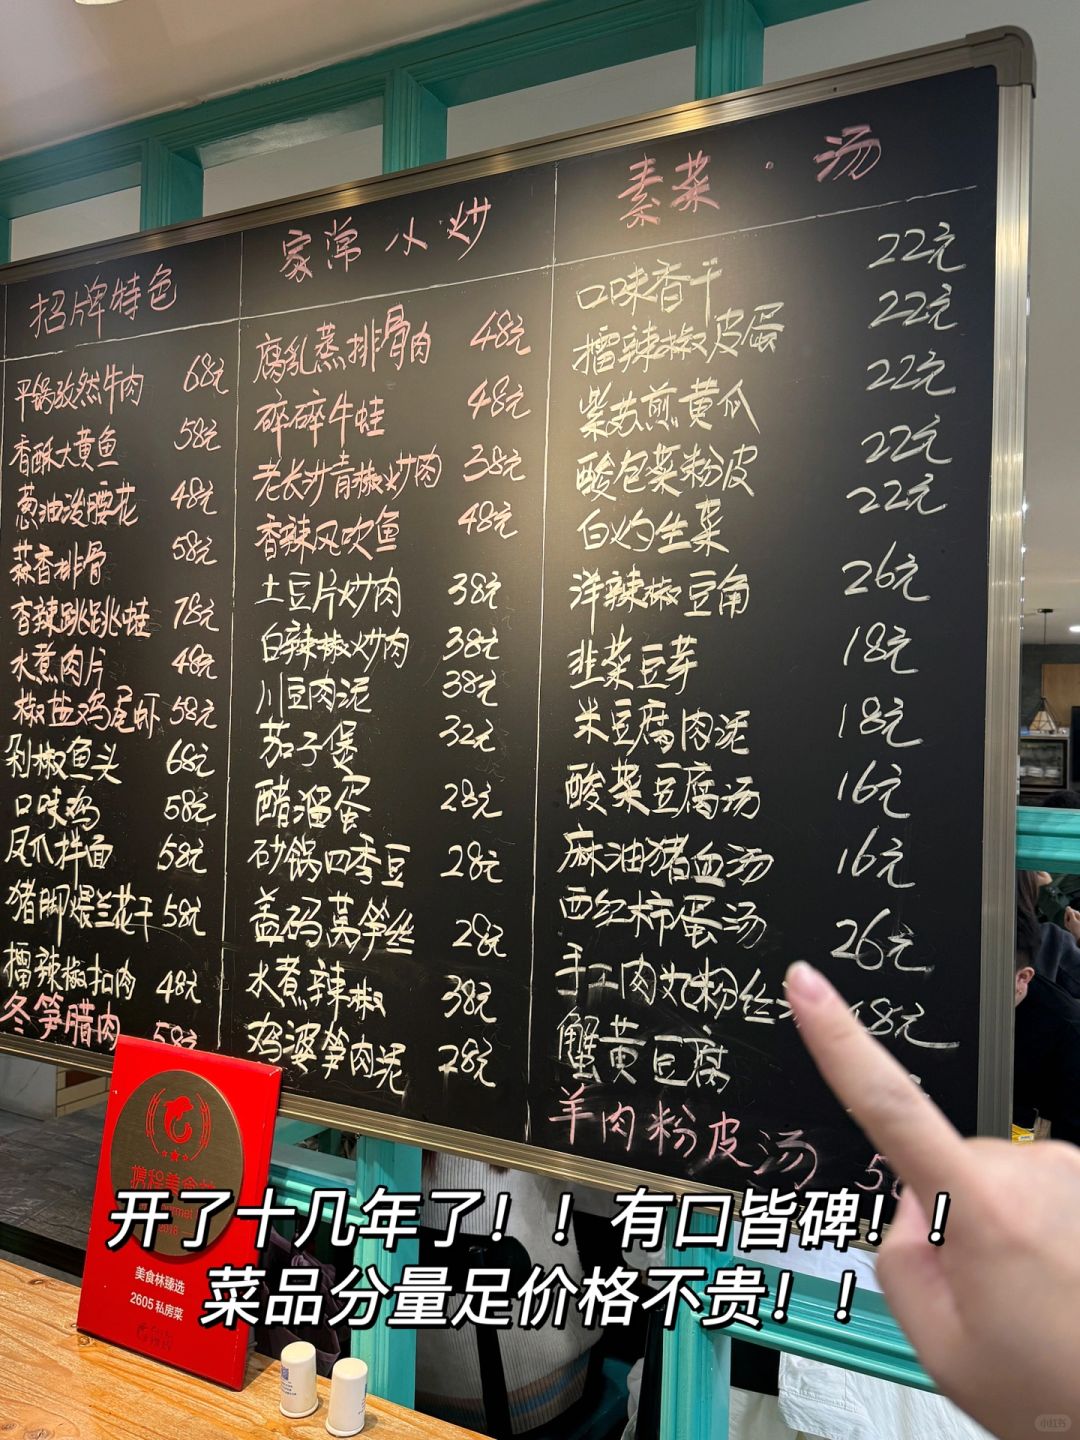 招牌特色
平锅孜然牛肉 68元
香酥大黄鱼 58元
葱油泼腰花 48元
蒜香排骨 58元
香辣跳跳蛙 78元
水煮肉片 48元
椒盐鸡尾虾 58元
剁椒鱼头 68元
口味鸡 58元
凤爪拌面 58元
猪脚煨兰花干 58元
擂辣椒扣肉 48元
冬笋腊肉 58元
家常小炒
腐乳蒸排骨肉 48元
碎碎牛蛙 48元
老长沙青椒炒肉 38元
香辣风吹鱼 48元
土豆片炒肉 38元
白辣椒炒肉 38元
川豆肉泥 38元
茄子煲 32元
醋溜蛋 28元
砂锅四季豆 28元
盖码莴笋丝 28元
水煮辣椒 38元
鸡婆笋肉泥 28元
素菜·汤
口味香干 22元
擂辣椒皮蛋 22元
紫苏煎黄瓜 22元
酸包菜粉皮 22元
白灼生菜 22元
洋辣椒豆角 26元
韭菜豆芽 18元
米豆腐肉泥 18元
酸菜豆腐汤 16元
麻油猪血汤 16元
西红柿蛋汤 26元
手工肉丸粉丝 8元
蟹黄豆腐
羊肉粉皮汤 5
携程美食林
2018
美食林臻选
2605私房菜
开了十几年了！！有口皆碑！！
菜品分量足价格不贵！！
小红书